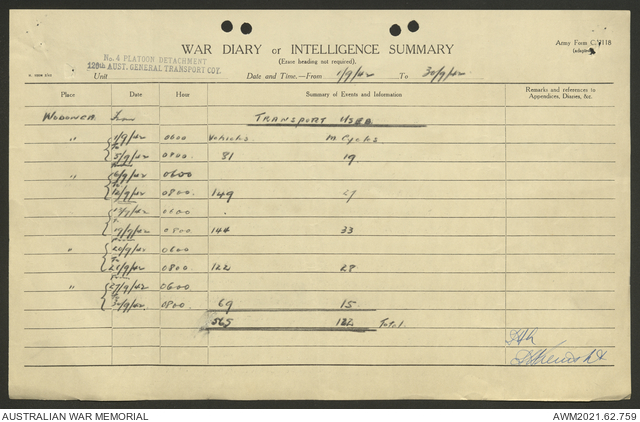 WAR DIARY or INTELLIGENCE SUMMARY
(Erase heading not required).
Army Form C.2118
No. 4 PLATOON DETACHMENT
128th AUST. GENERAL TRANSPORT COY.
Unit
Date and Time.—From 1/9/42 To 30/9/42
Place Date Hour Summary of Events and Information Remarks and references to Appendices, Diaries, &c.
WODONGA From TRANSPORT USED
" 1/9/42 0600 Vehicles M. Cycles
To
5/9/42 0800 81 19
" 6/9/42 0600
To
12/9/42 0800 149 27
13/9/42 0600
To
19/9/42 0800 144 33
" 20/9/42 0600
To
26/9/42 0800 122 28
" 27/9/42 0600
To
30/9/42 0800 69 15
565 122 Total
AUSTRALIAN WAR MEMORIAL
AWM2021.62.759